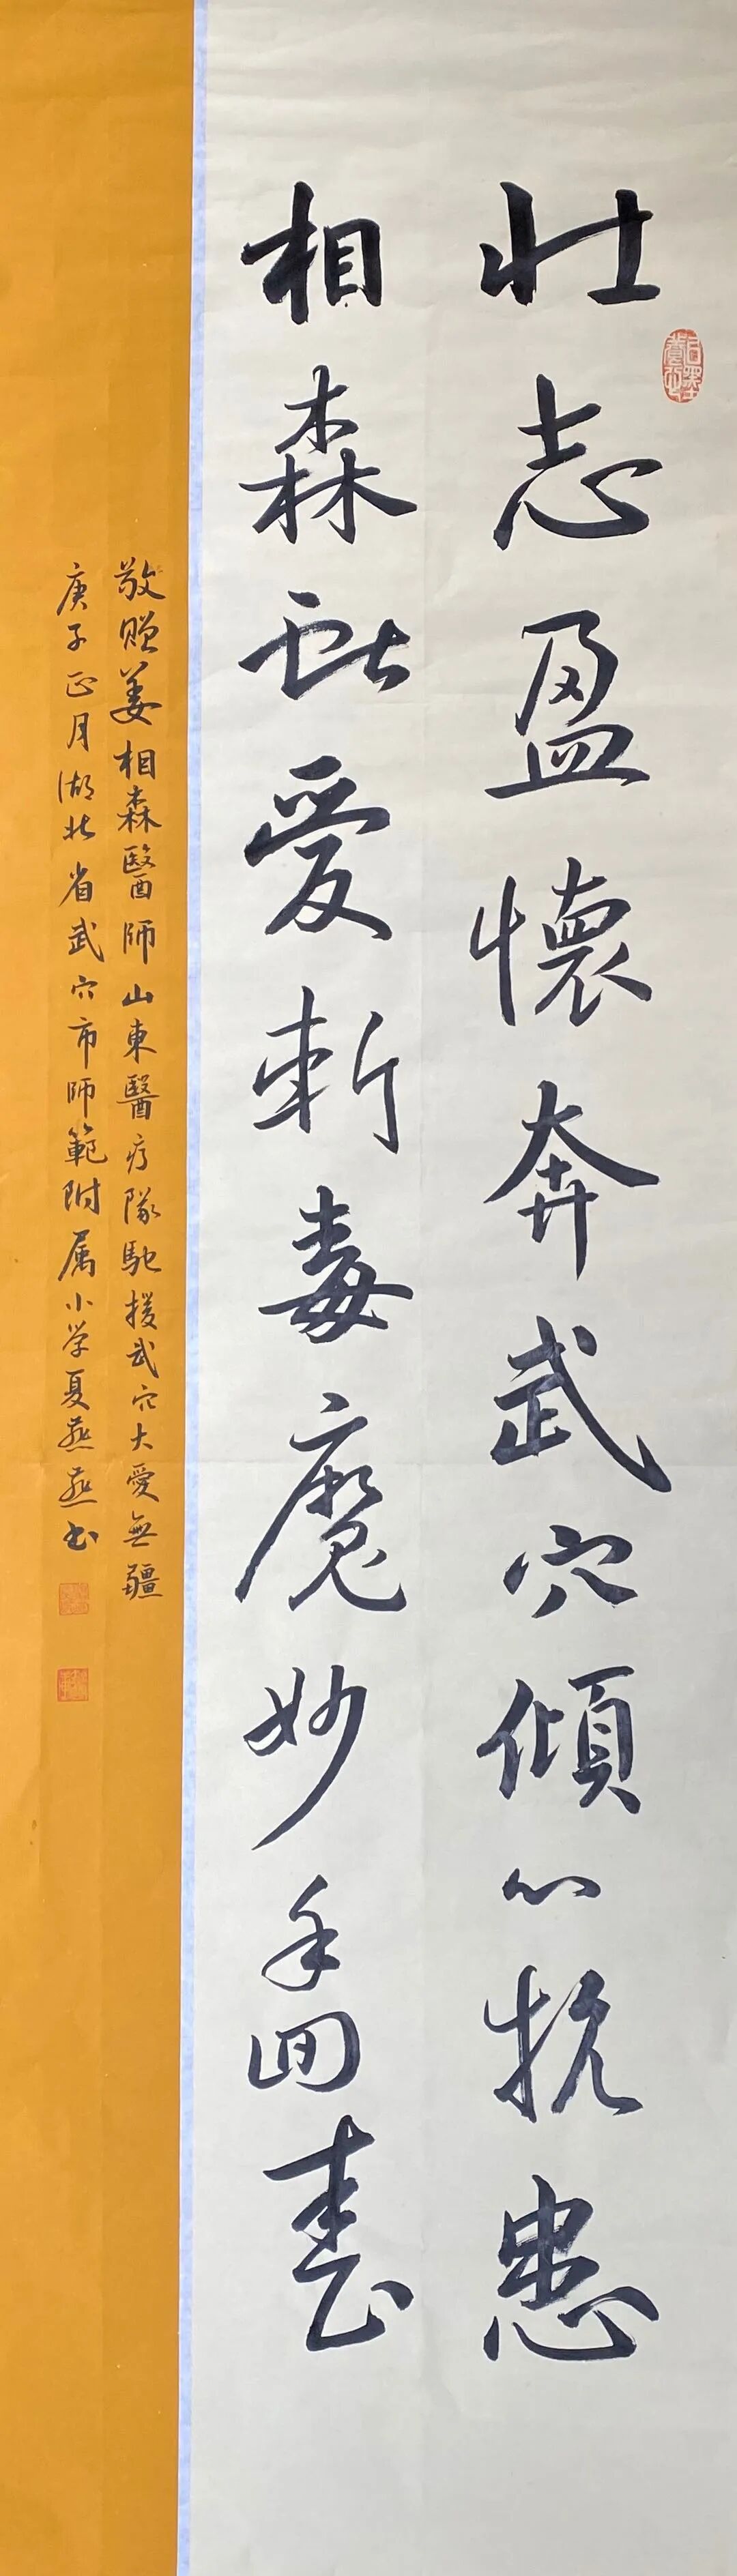 壮志盈懷奔武穴傾心抗患
相森獻愛斬毒魔妙手回春
敬贈姜相森醫師山東醫疗隊馳援武穴大愛無疆
庚子正月湖北省武穴市師範附属小学夏燕燕书